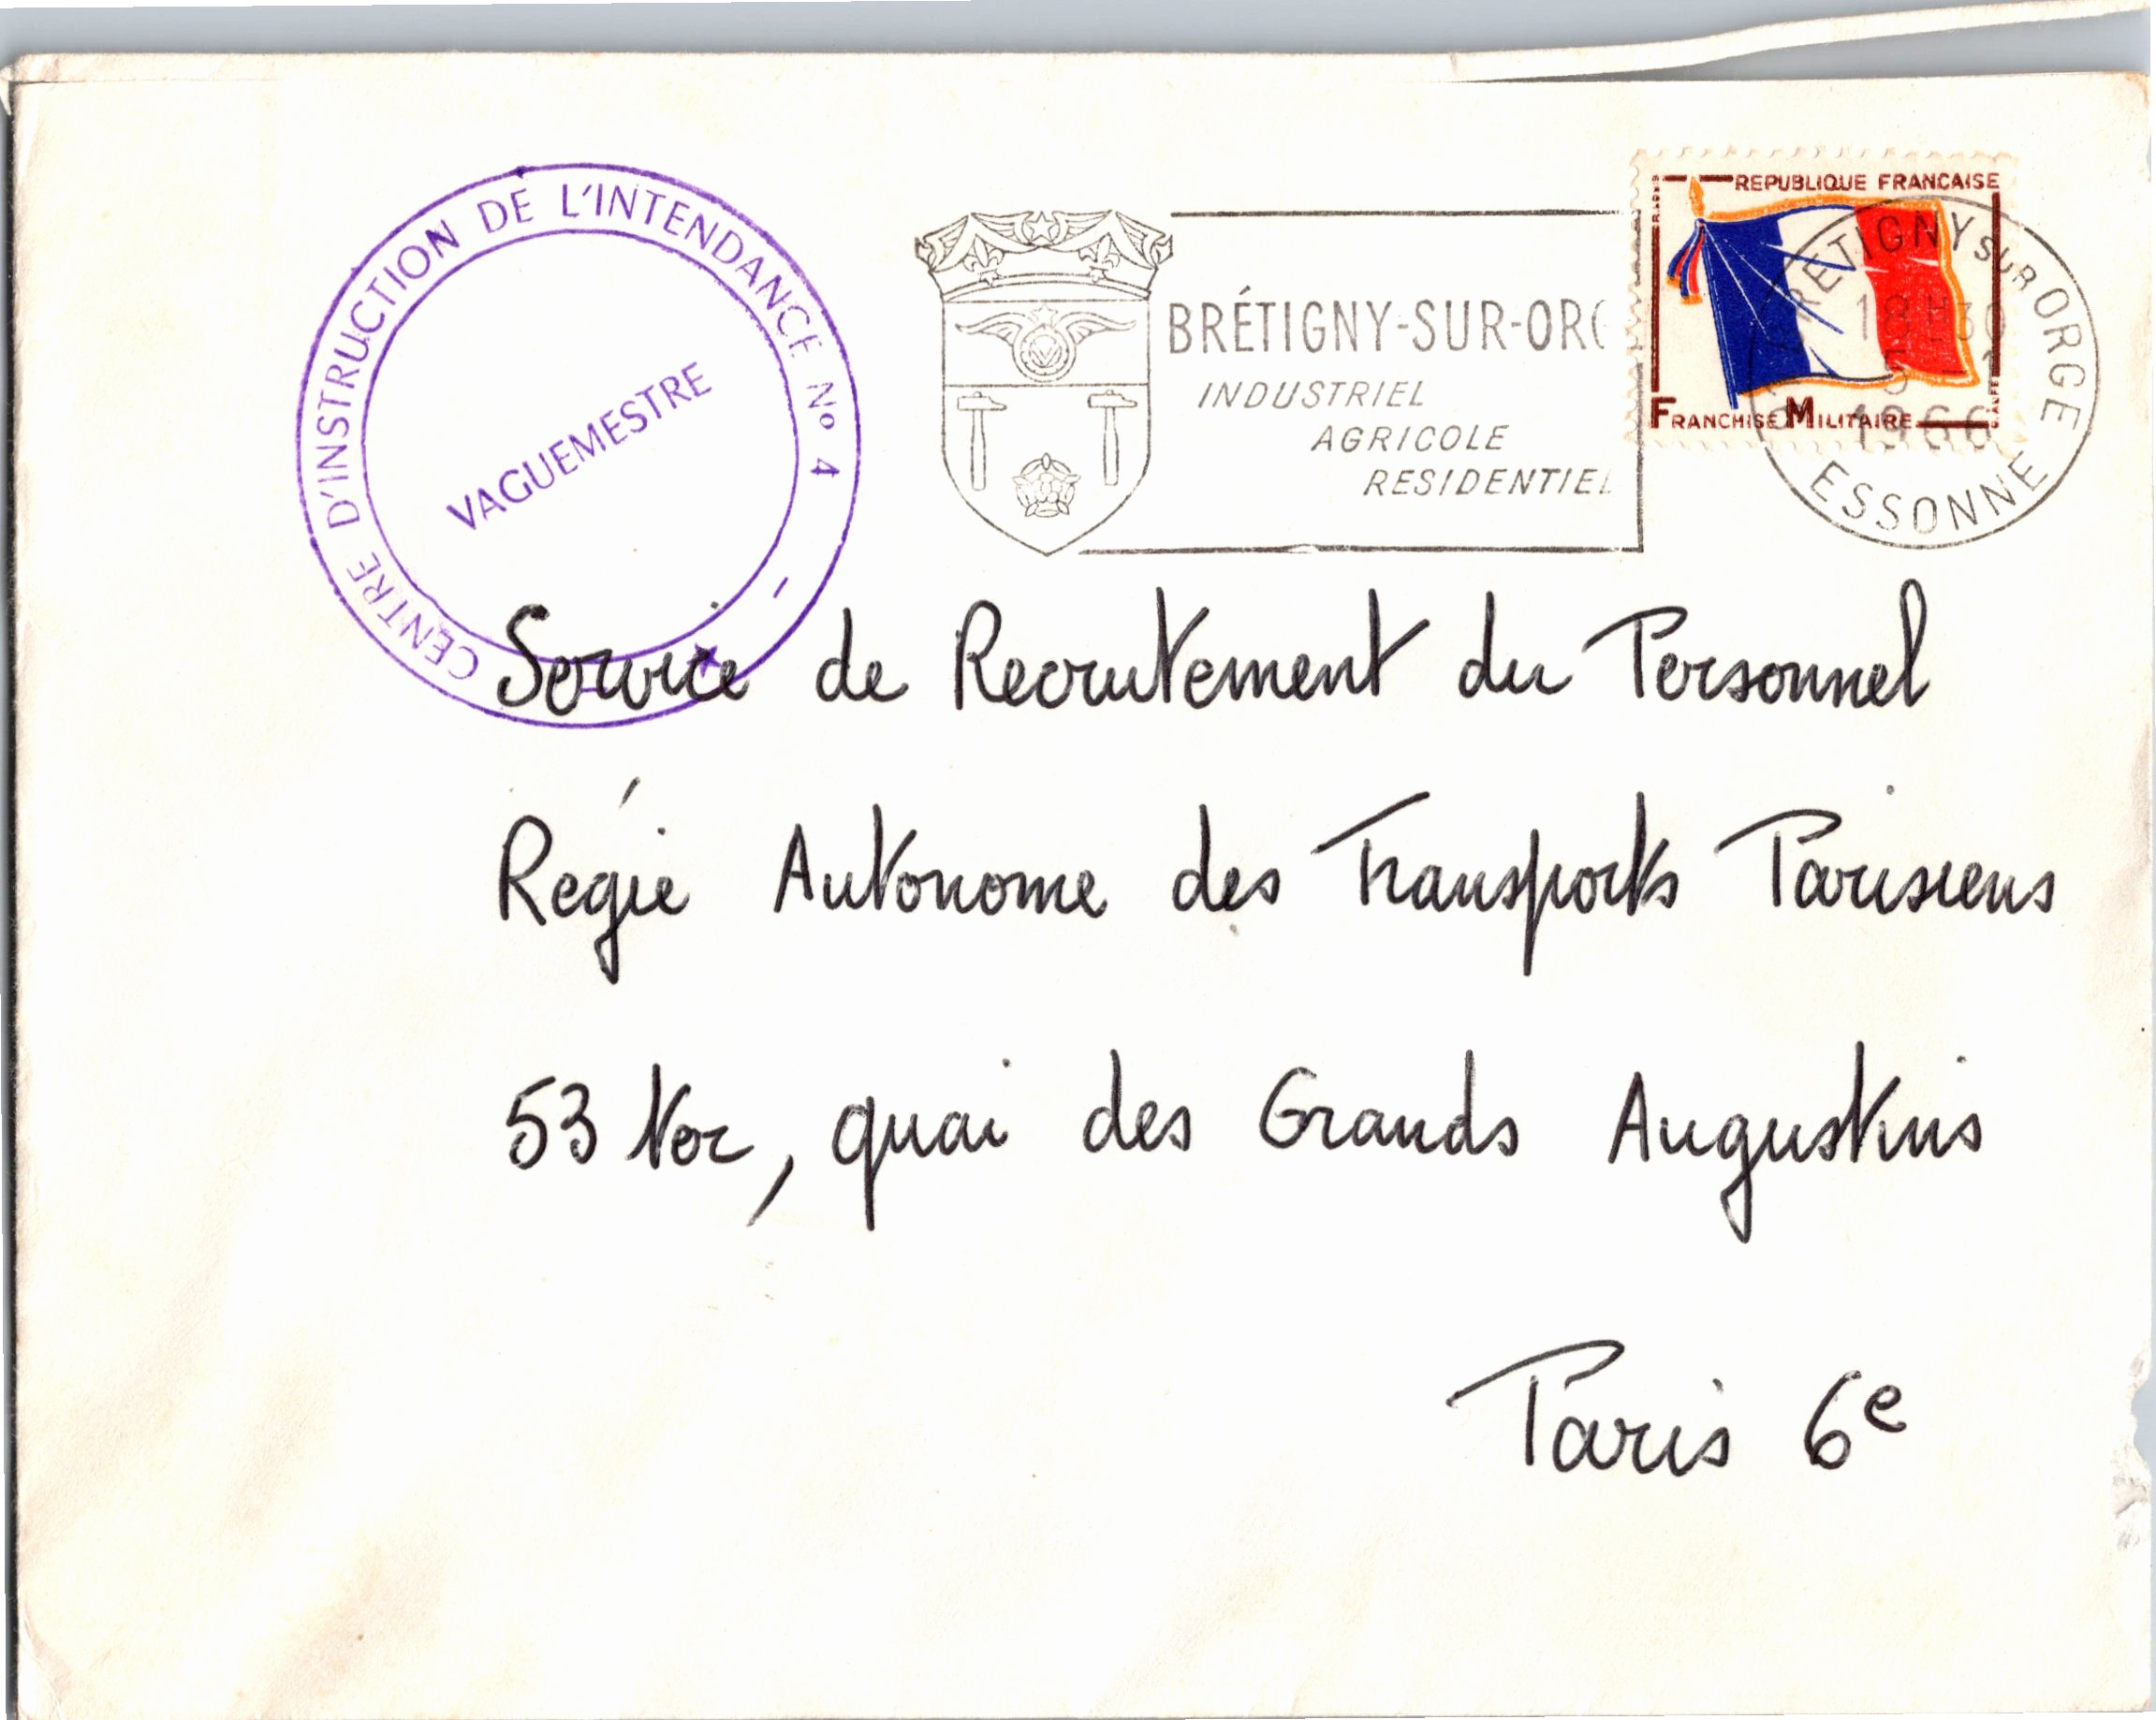 CENTRE D'INSTRUCTION DE L'INTENDANCE No 4 -
VAGUEMESTRE
BRÉTIGNY-SUR-ORG
INDUSTRIEL
AGRICOLE
RESIDENTIEL
REPUBLIQUE FRANCAISE
FRANCHISE MILITAIRE
BRETIGNY SUR ORGE
18 H30
1966
ESSONNE
Service de Recrutement du Personnel
Régie Autonome des Transports Parisiens
53 ter, quai des Grands Augustins
Paris 6e